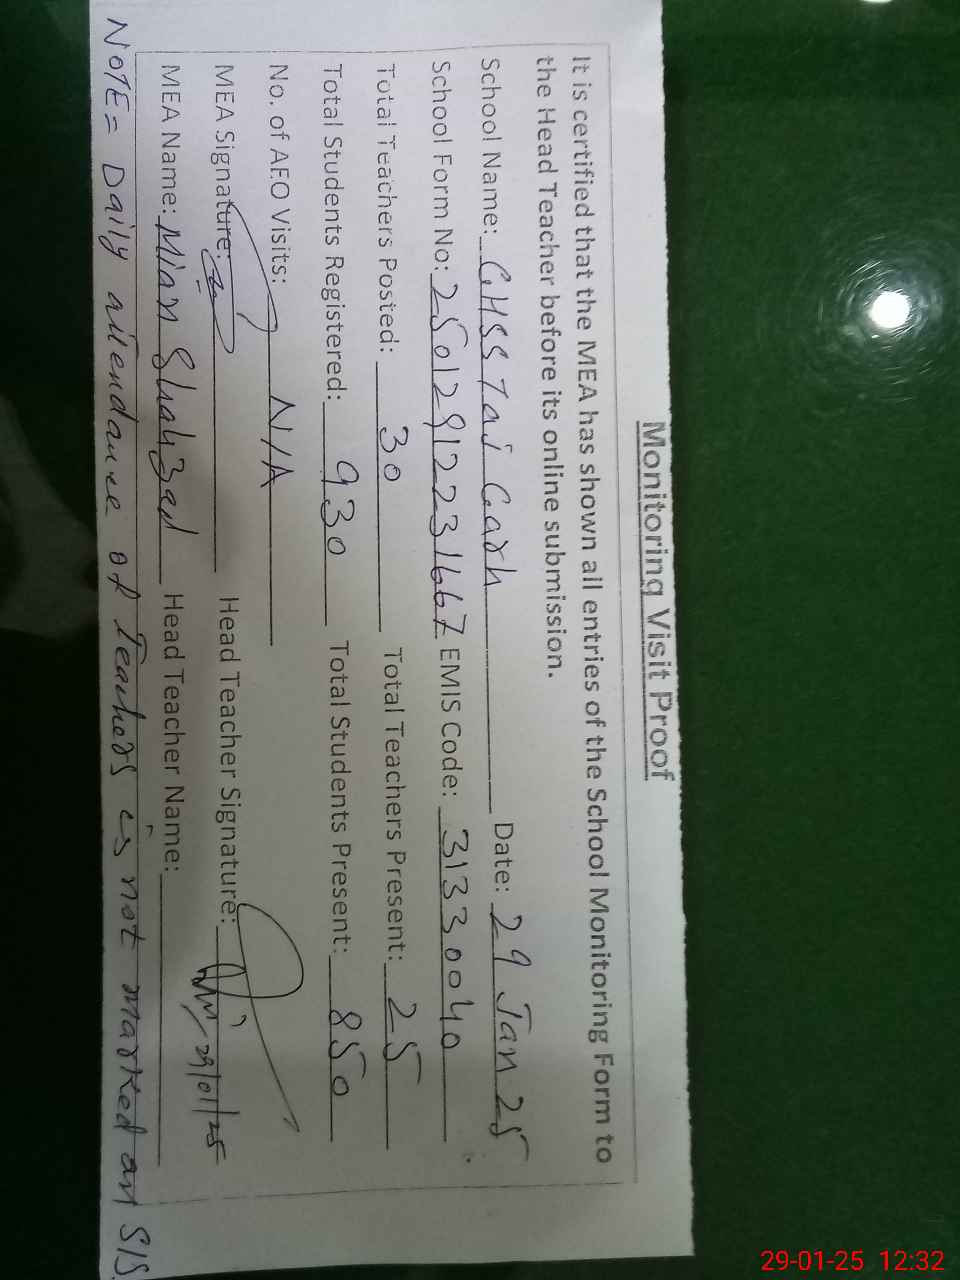 Monitoring Visit Proof
It is certified that the MEA has shown all entries of the School Monitoring Form to
the Head Teacher before its online submission.
School Name: GHSS Taj Garh Date: 29 Jan 25
School Form No: 25012912231667 EMIS Code: 31330040
Total Teachers Posted: 30 Total Teachers Present: 25
Total Students Registered: 930 Total Students Present: 850
No. of AEO Visits: N/A
MEA Signature: Head Teacher Signature: 29/01/25
MEA Name: Mian Shahzad Head Teacher Name:
NOTE= Daily attendance of Teachers is not marked on SIS.
29-01-25 12:32